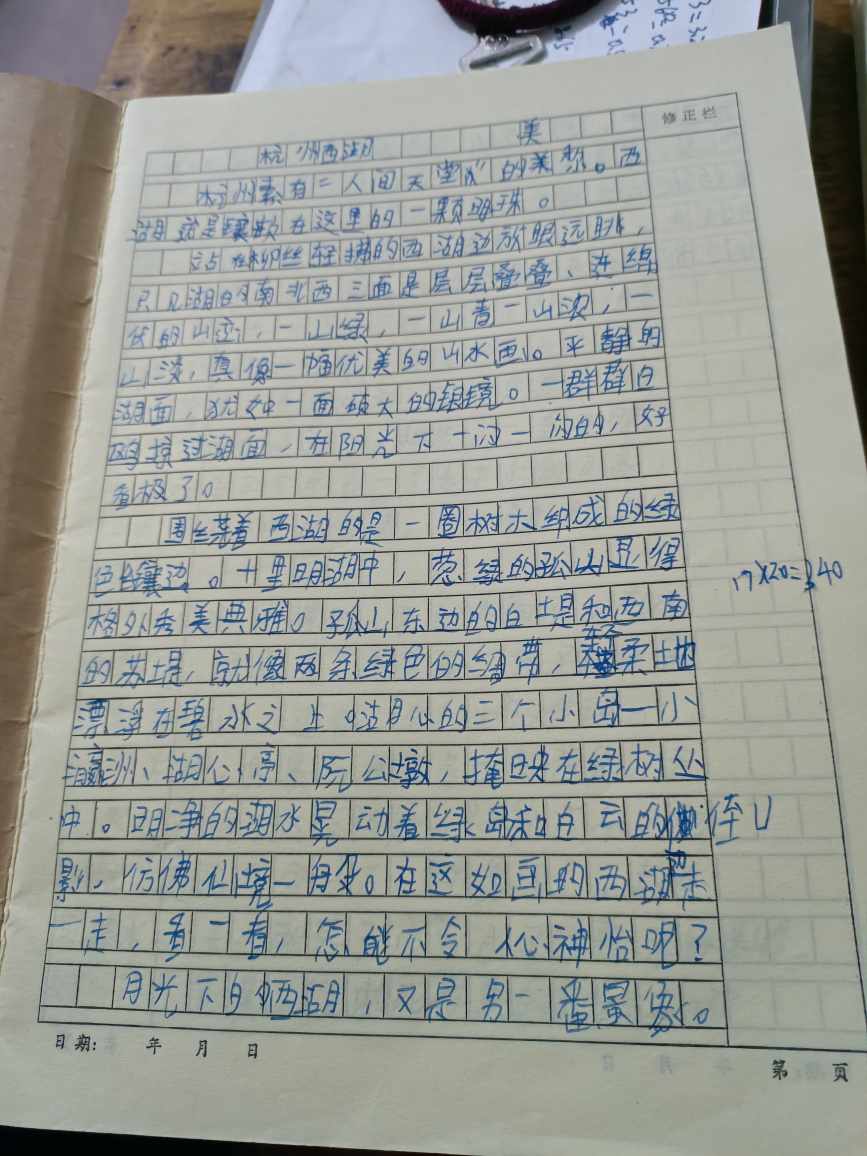 修正栏
杭州西湖 美
杭州素有“人间天堂”的美称。西
湖就是镶嵌在这里的一颗明珠。
站在柳丝轻拂的西湖边放眼远眺，
只见湖的南北西三面是层层叠叠、连绵
伏的山峦，一山绿，一山青，一山浓，一
山淡，真像一幅优美的山水画。平静的
湖面，犹如一面硕大的银镜。一群群白
鸥掠过湖面，在阳光下一闪一闪的，好
看极了。
围绕着西湖的是一圈树木组成的绿
色镶边。十里明湖中，葱绿的孤山显得
格外秀美典雅。孤山东边的白堤和西南
的苏堤，就像两条绿色的绸带，轻柔地
漂浮在碧水之上。湖心的三个小岛一小
瀛洲、湖心亭、阮公墩，掩映在绿树处
中。明净的湖水晃动着绿岛和白云的
影，仿佛仙境一般。在这如画的西湖边走
一走，看一看，怎能不令心神怡呢？
月光下的西湖，又是另一番景象。
17×20=340
日期： 年 月 日
第 页